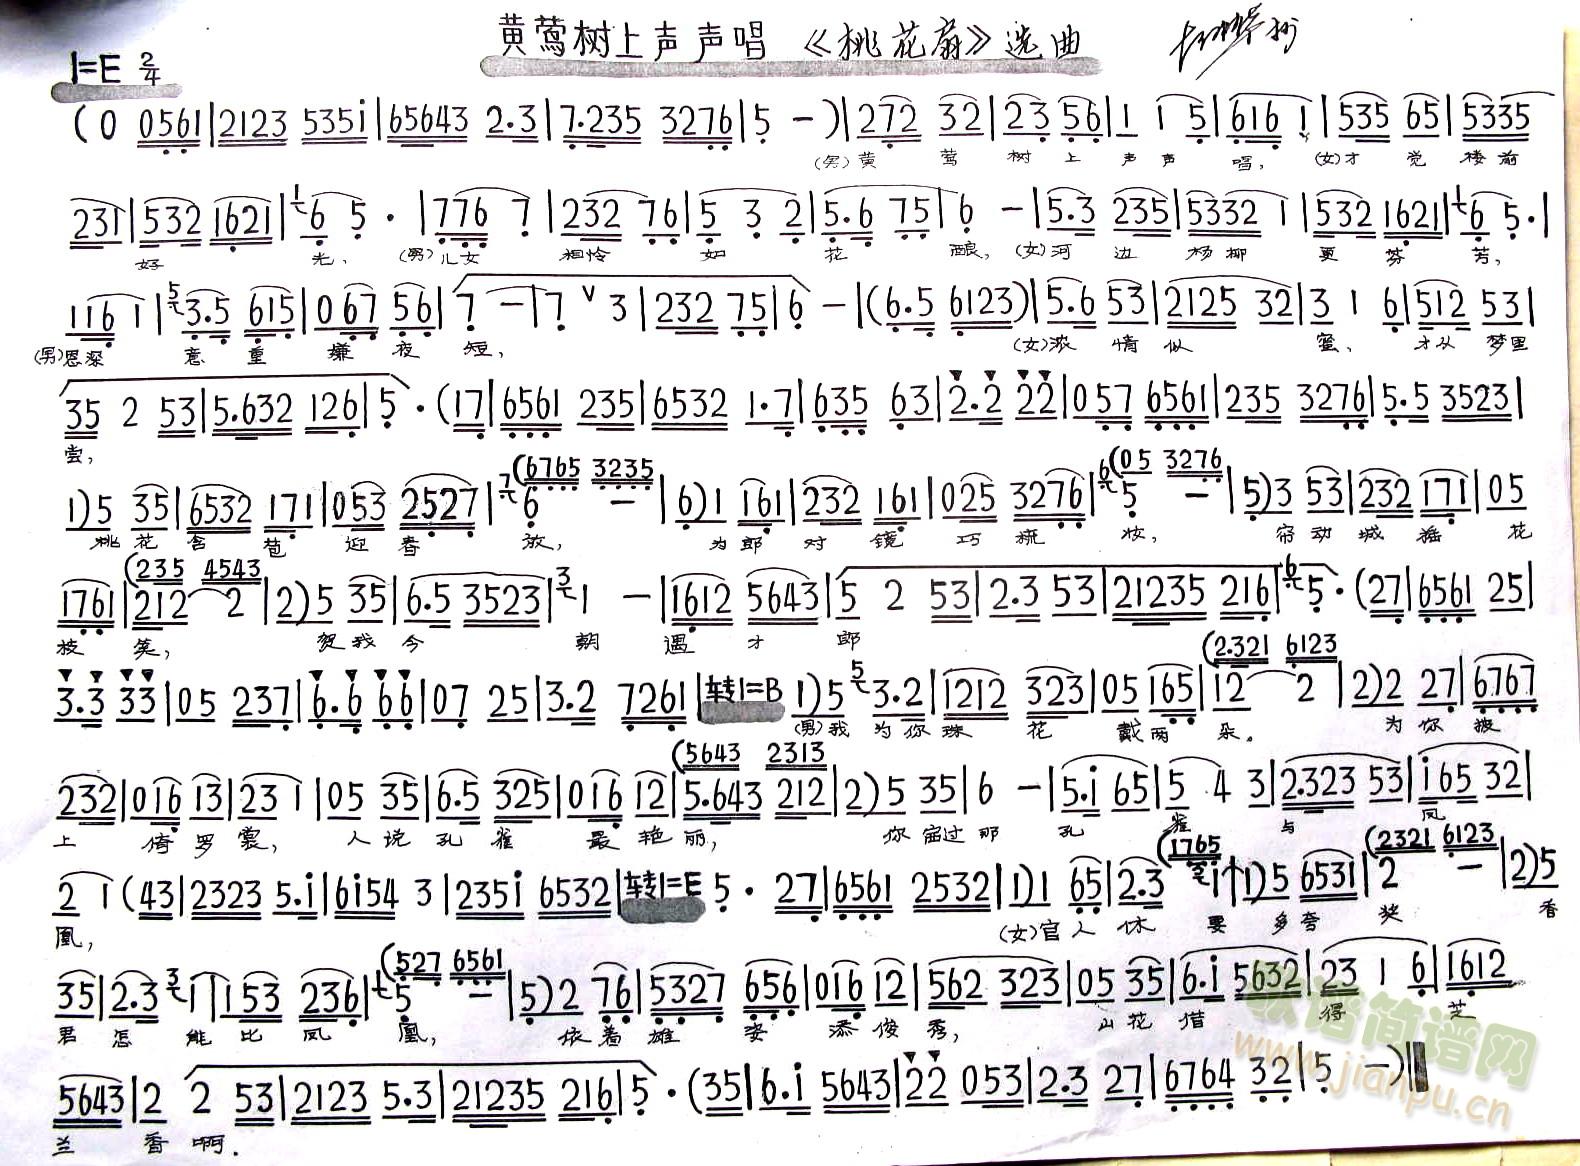 黄莺树上声声唱 《桃花扇》选曲
1=E 2/4
(0 0561|2123 535i|65643 2.3|7.235 3276|5 -)|272 32|23 56|1 1 5|6161|535 65|5335
(男)黄 莺 树 上 声 声 唱, (女)才 觉 楼前
231|532 1621|6 5.|776 7|232 76|5 3 2|5.6 75|6 -|5.3 235|5332 1|532 1621|6 5.|
好 光, (男)儿女 相怜 如 花 酿, (女)河 边 杨柳 更 芬 芳,
116 1|3.5 615|067 56|7 -|7 ∨ 3|232 75|6 -|(6.5 6123)|5.6 53|2125 32|3 1 6|512 53|
(男)恩深 意 重 嫌 夜 短, (女)浓 情 似 蜜, 才从 梦里
35 2 53|5.632 126|5.(17|6561 235|6532 1.7|635 63|2.2 22|057 6561|235 3276|5.5 3523|
尝,
(6765 3235 (05 3276
1)5 35|6532 171|053 2527|6 -|6)1 161|232 161|025 3276|5 -|5)3 53|232 171|05
桃花 含 苞 迎 春 放, 为郎 对 镜 巧 梳 妆, 帘 动 城 摇 花
(235 4543
1761|212 2|2)5 35|6.5 3523|1 -|1612 5643|5 2 53|2.3 53|21235 216|5.(27|6561 25|
枝 笑, 贺我 今 朝 遇 才 郎
(2.321 6123
3.3 33|05 237|6.6 66|07 25|3.2 7261|转1=B 1)5 3.2|1212 323|05 165|12 2|2)2 27|6767
(男)我 为你 珠 花 戴两 朵。 为 你 披
(5643 2313
232|016 13|23 1|05 35|6.5 325|016 12|5.643 212|2)5 35|6 -|5.i 65|5 4 3|2.323 53|i65 32|
上 绮 罗 裳, 人 说 孔 雀 最 艳 丽, 你 宙过 那 孔 雀 与 凤
(1765 (2321 6123
2 1 (43|2323 5.i|6i54 3|235i 6532|转1=E 5. 27|6561 2532|1)1 65|2.3 i|1)5 6531|2 -|2)5
凰, (女)官 人 休 要 多 夸 奖 香
(527 6561
35|2.3 1|153 236|5 -|5)2 76|5327 656|016 12|562 323|05 35|6.i 5632|23 1 6|1612
君 怎 能 比 凤 凰, 依 着 雄 姿 添 俊 秀, 山花 借 得 芝
5643|2 2 53|2123 5.3|21235 216|5.(35|6.i 5643|22 053|2.3 27|6764 32|5 -)‖
兰 香 啊.
歌谱简谱网
www.jianpu.cn